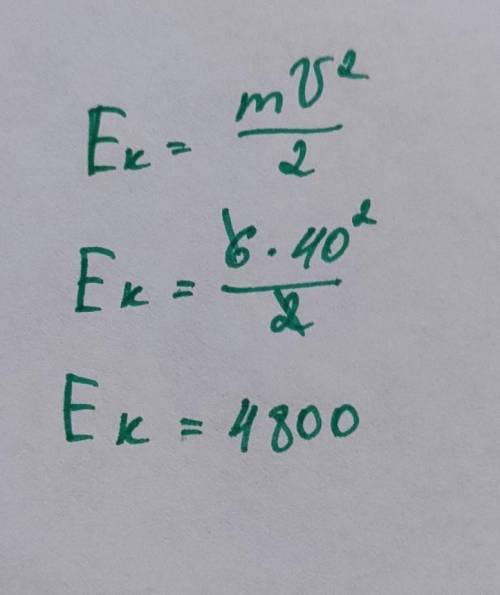 Eк = mV²/2
Eк = 6·40²/2
Eк = 4800